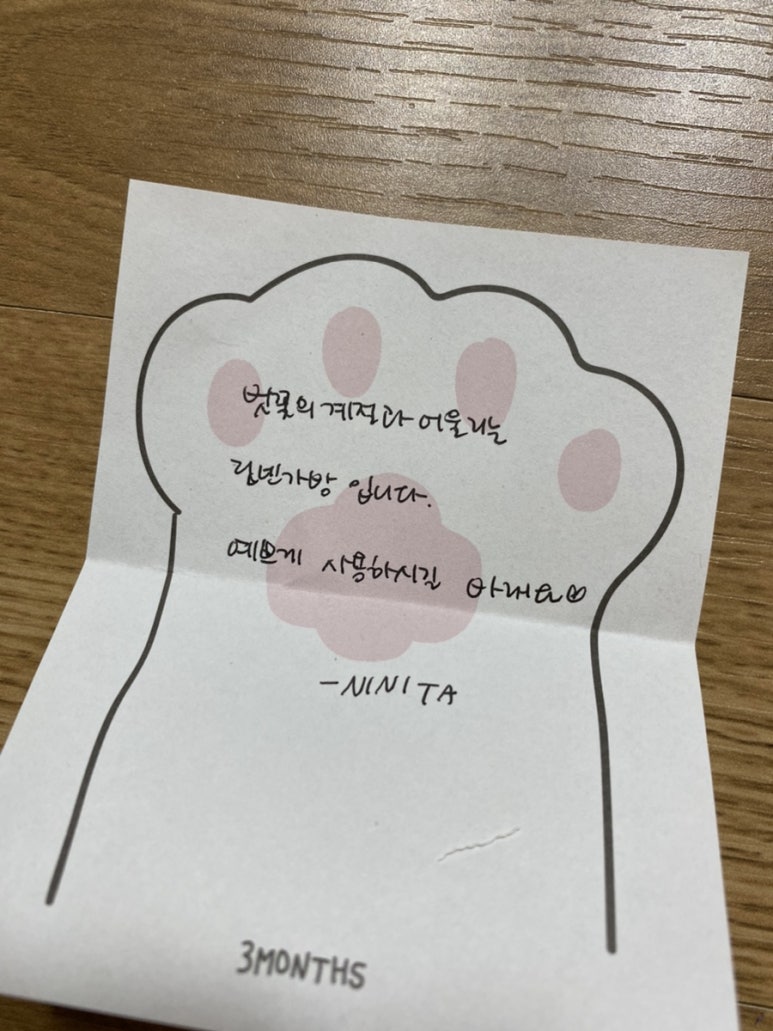 벚꽃의 계절과 어울리는
린넨가방 입니다.
예쁘게 사용하시길 바래요♡
-NINITA
3MONTHS